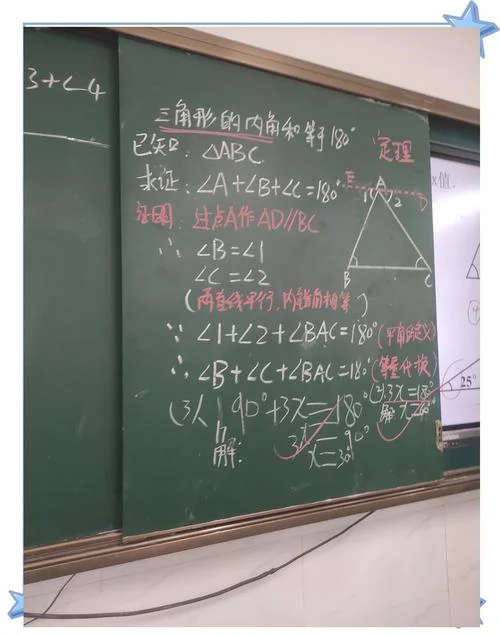 3+∠4
三角形的内角和等于180°
定理
已知: △ABC.
求证: ∠A+∠B+∠C=180°
证明: 过点A作AD//BC
∴ ∠B=∠1
∠C=∠2
(两直线平行,内错角相等)
∵ ∠1+∠2+∠BAC=180°(平角的定义)
∴ ∠B+∠C+∠BAC=180°(等量代换)
E A D
1 2
B C
(3) 90°+3x=180°
解: 3x=90°
x=30°
(2)3x=180°
解 x=60°
x值.
25°